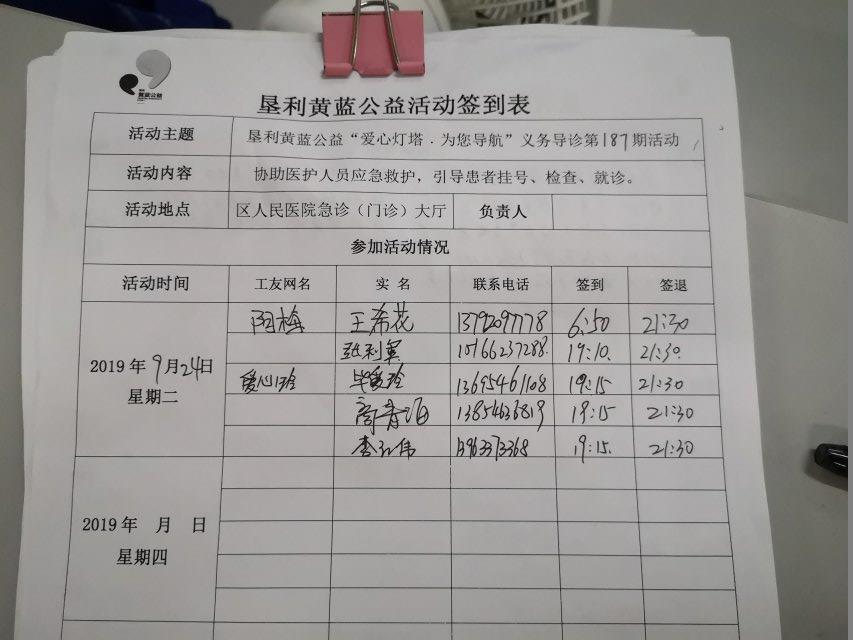 黄蓝公益
垦利黄蓝公益活动签到表
活动主题 垦利黄蓝公益“爱心灯塔﹒为您导航”义务导诊第187期活动
活动内容 协助医护人员应急救护，引导患者挂号、检查、就诊。
活动地点 区人民医院急诊（门诊）大厅 负责人
参加活动情况
活动时间 工友网名 实 名 联系电话 签到 签退
阳梅 王希花 13792097778 6:50 21:30
张利军 15166237288 19:10 21:30
2019 年 9月24日
星期二
爱心玲 毕爱玲 13695461108 19:15 21:30
高青 13854636819 19:15 21:30
李红伟 19:15 21:30
2019 年 月 日
星期四